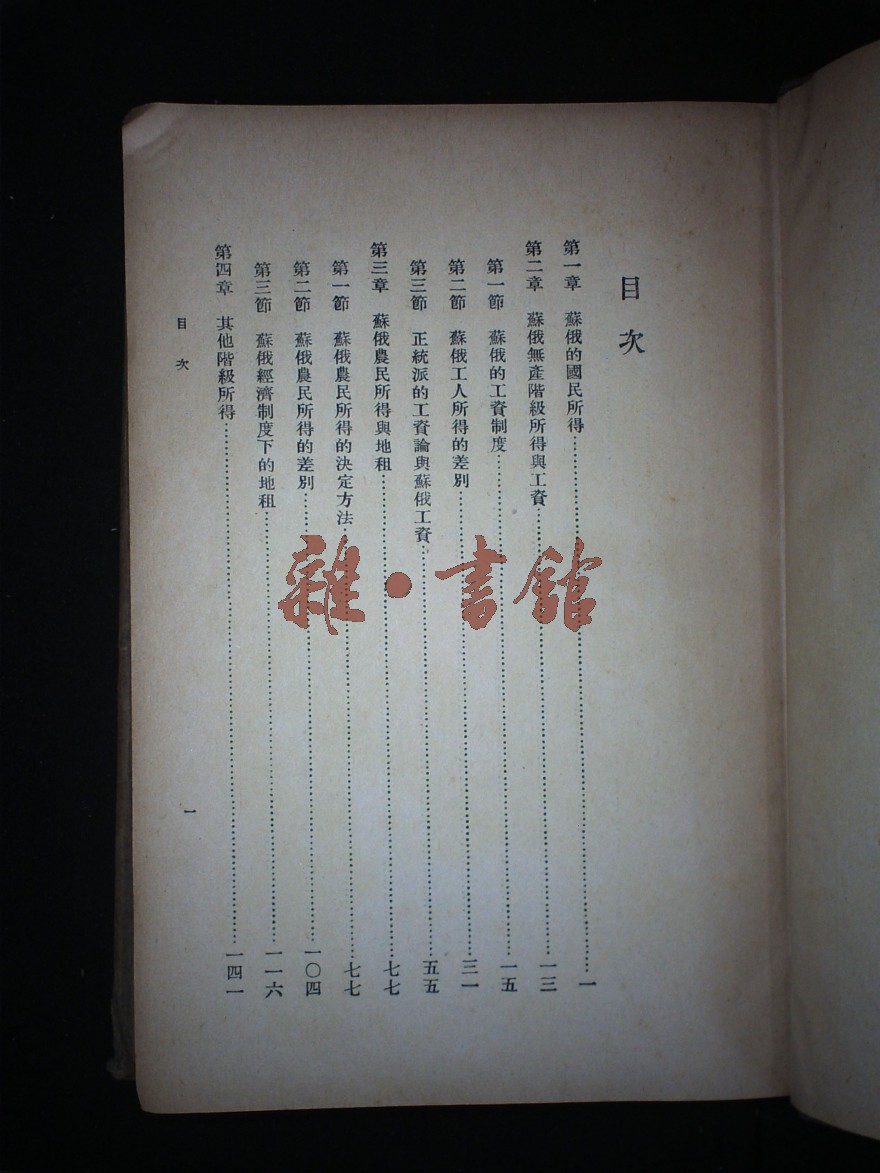 目次
第一章　蘇俄的國民所得…………一
第二章　蘇俄無產階級所得與工資…………一三
第一節　蘇俄的工資制度…………一五
第二節　蘇俄工人所得的差別…………三一
第三節　正統派的工資論與蘇俄工資…………五五
第三章　蘇俄農民所得與地租…………七七
第一節　蘇俄農民所得的決定方法…………七七
第二節　蘇俄農民所得的差別…………一〇四
第三節　蘇俄經濟制度下的地租…………一一六
第四章　其他階級所得…………一四一
目次
一
雜·書館